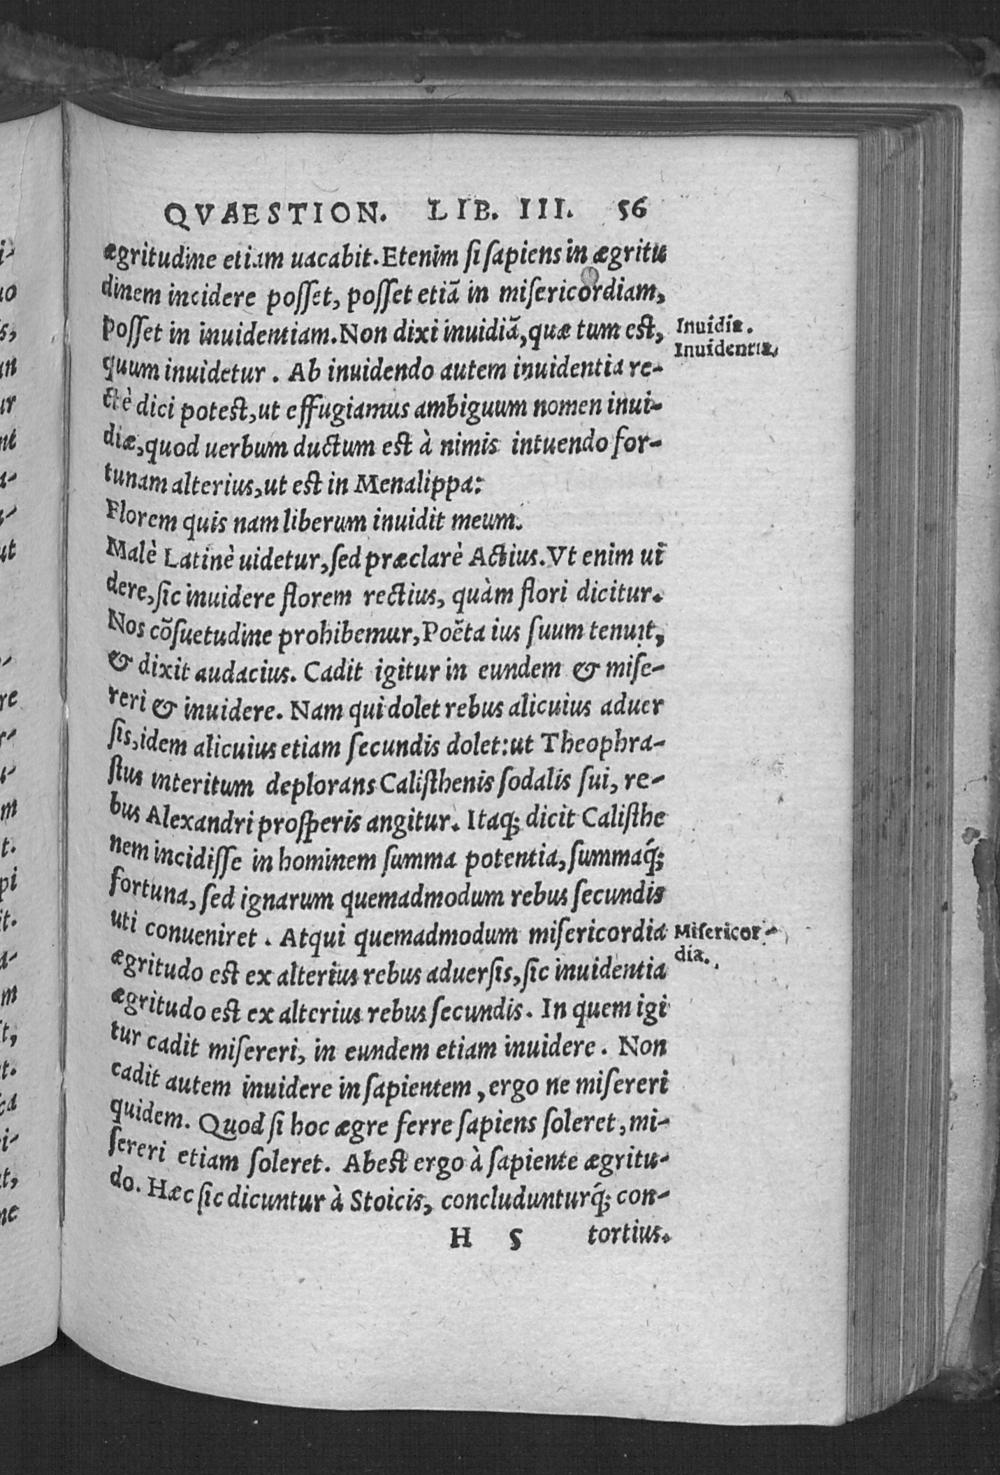 QVAESTION. LIB. III. 56
ægritudine etiam uacabit. Etenim si sapiens in ægritu
dinem incidere posset, posset etiã in misericordiam,
posset in inuidentiam. Non dixi inuidiã, quæ tum est,
Inuidia.
Inuidentia.
quum inuidetur. Ab inuidendo autem inuidentia re-
ctè dici potest, ut effugiamus ambiguum nomen inui-
diæ, quod uerbum ductum est à nimis intuendo for-
tunam alterius, ut est in Menalippa:
Florem quis nam liberum inuidit meum.
Malè Latinè uidetur, sed præclarè Actius. Vt enim ui
dere, sic inuidere florem rectius, quàm flori dicitur.
Nos cõsuetudine prohibemur, Poëta ius suum tenuit,
& dixit audacius. Cadit igitur in eundem & mise-
reri & inuidere. Nam qui dolet rebus alicuius aduer
sis, idem alicuius etiam secundis dolet: ut Theophra-
stus interitum deplorans Calisthenis sodalis sui, re-
bus Alexandri prosperis angitur. Itaq; dicit Calisthe
nem incidisse in hominem summa potentia, summaq́;
fortuna, sed ignarum quemadmodum rebus secundis
uti conueniret. Atqui quemadmodum misericordia
Misericor-
dia.
ægritudo est ex alterius rebus aduersis, sic inuidentia
ægritudo est ex alterius rebus secundis. In quem igi
tur cadit misereri, in eundem etiam inuidere. Non
cadit autem inuidere in sapientem, ergo ne misereri
quidem. Quod si hoc ægre ferre sapiens soleret, mi-
sereri etiam soleret. Abest ergo à sapiente ægritu-
do. Hæc sic dicuntur à Stoicis, concludunturq́; con-
H 5 tortius.